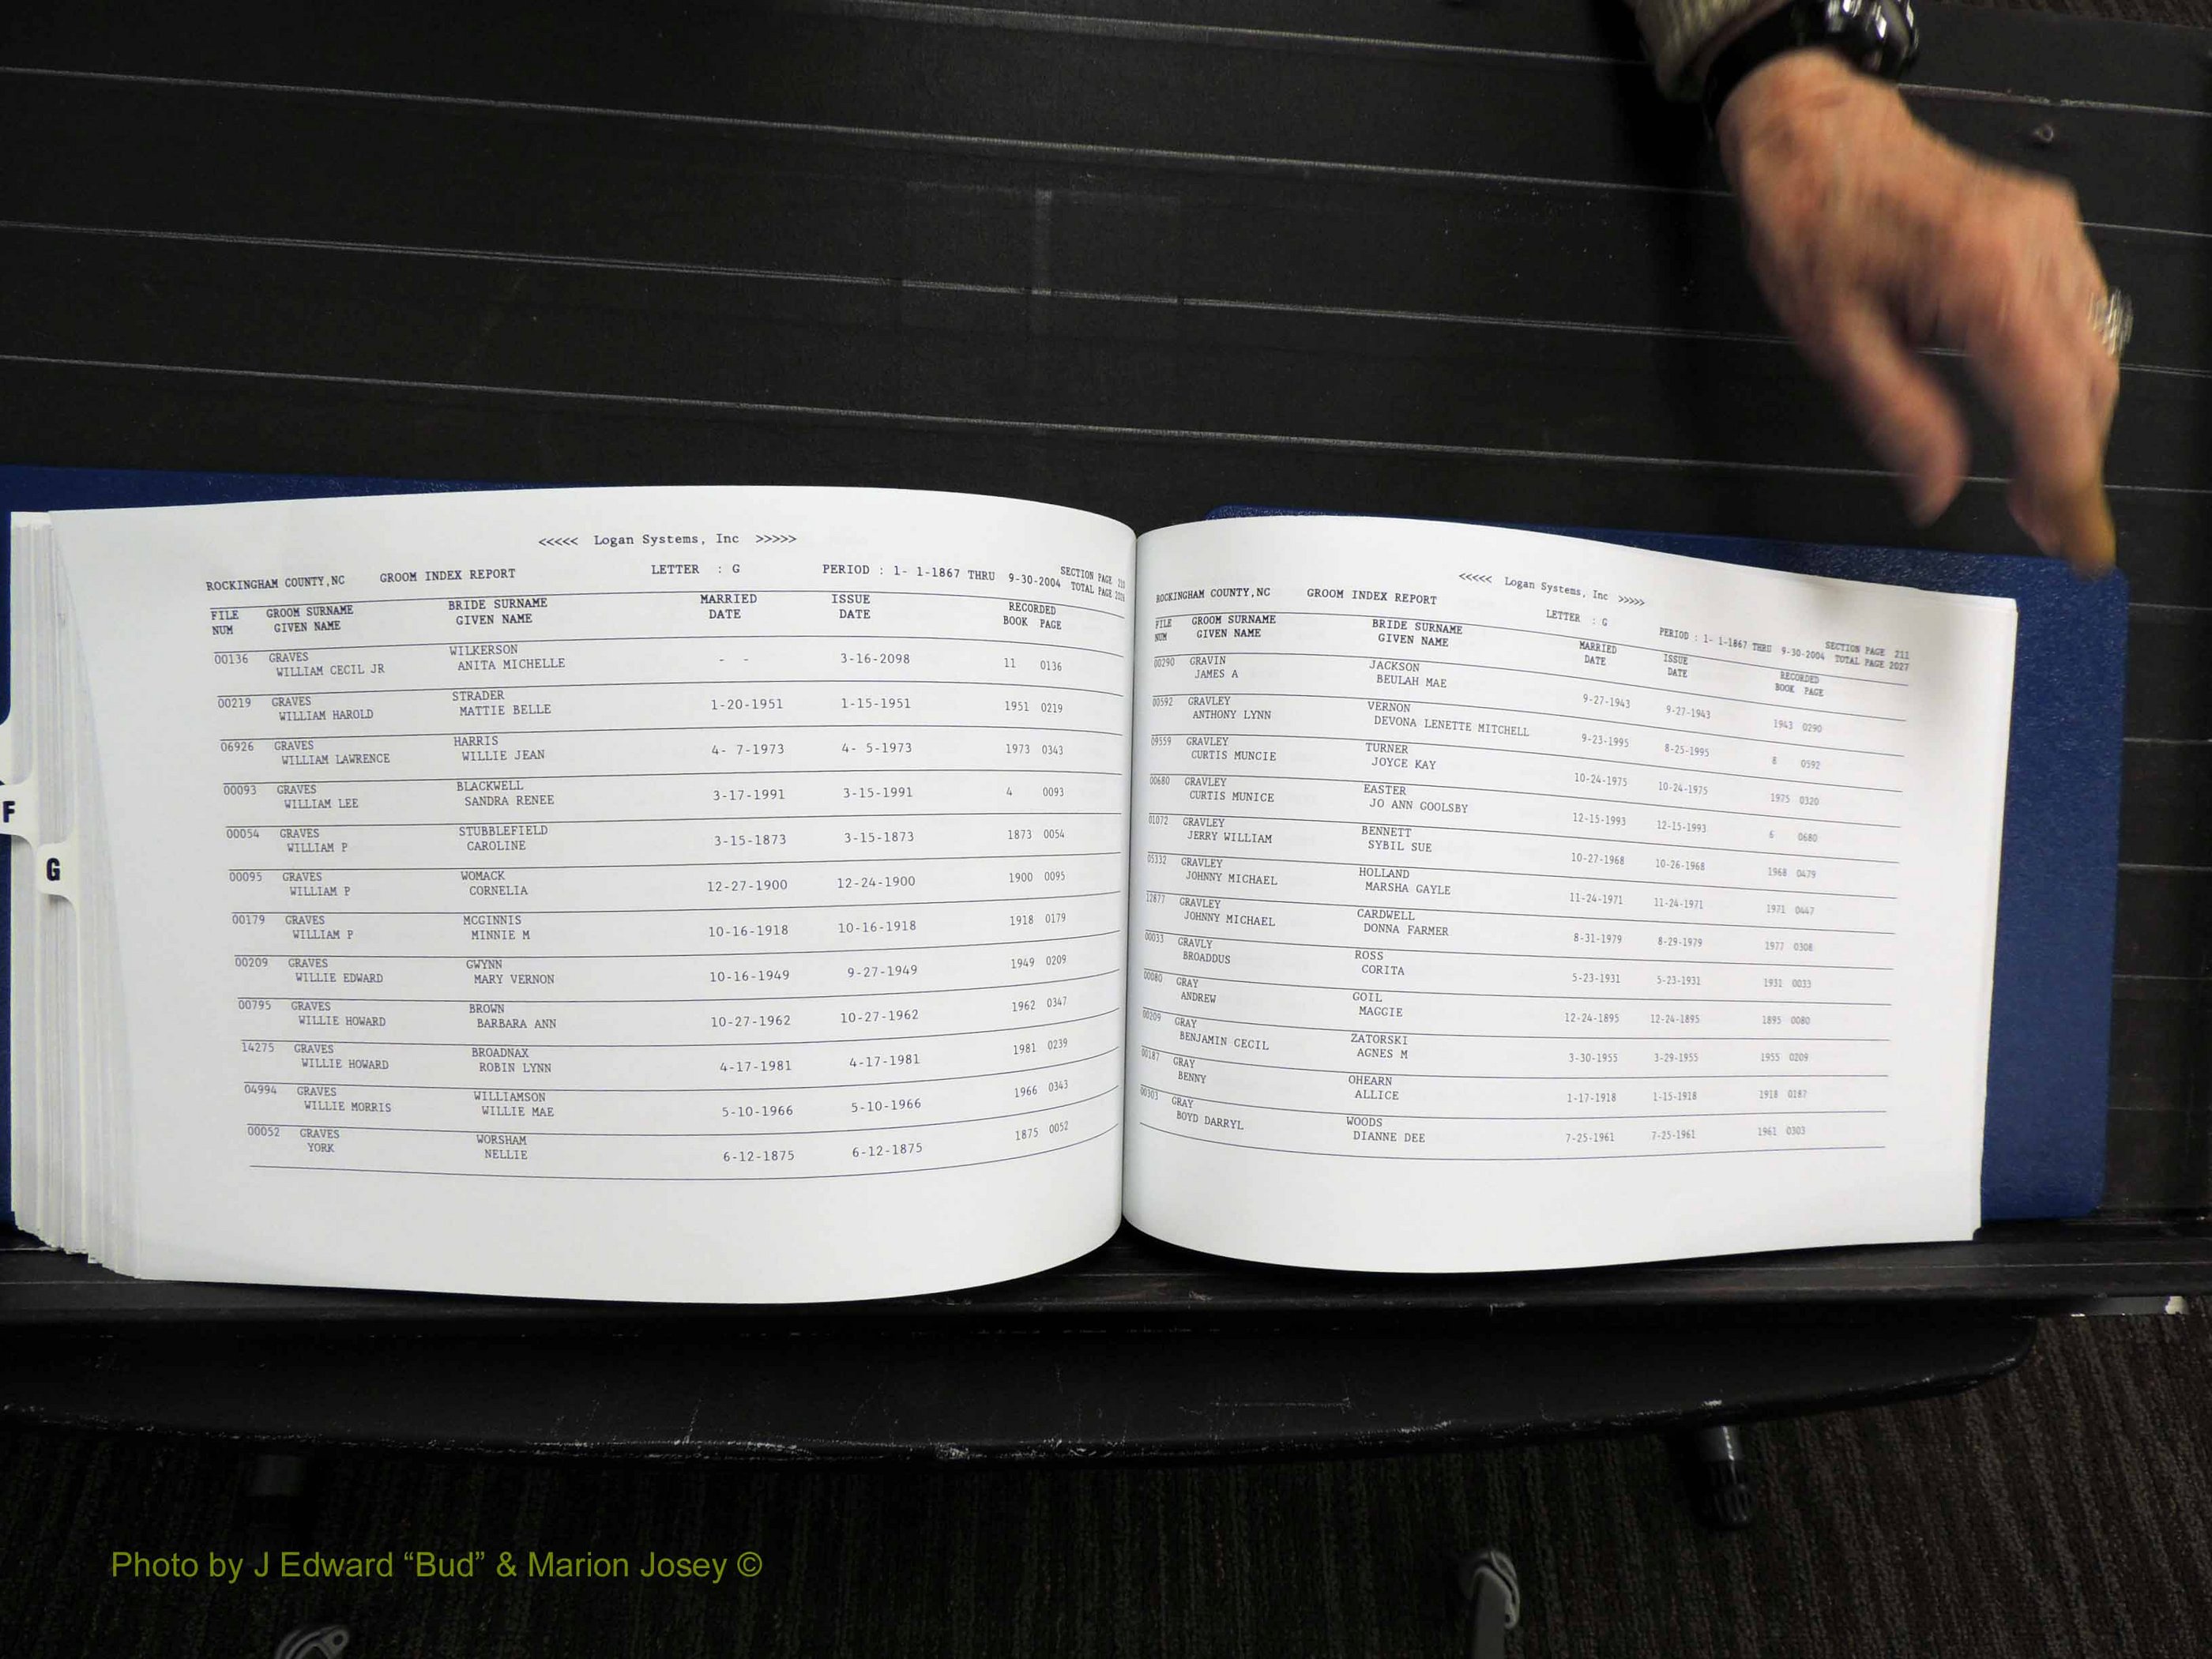 <<<<< Logan Systems, Inc >>>>>
ROCKINGHAM COUNTY,NC GROOM INDEX REPORT LETTER : G PERIOD : 1- 1-1867 THRU 9-30-2004 SECTION PAGE
TOTAL PAGE
FILE GROOM SURNAME BRIDE SURNAME MARRIED ISSUE RECORDED
NUM GIVEN NAME GIVEN NAME DATE DATE BOOK PAGE
00136 GRAVES WILKERSON - - 3-16-2098 11 0136
WILLIAM CECIL JR ANITA MICHELLE
00219 GRAVES STRADER 1-20-1951 1-15-1951 1951 0219
WILLIAM HAROLD MATTIE BELLE
06926 GRAVES HARRIS 4- 7-1973 4- 5-1973 1973 0343
WILLIAM LAWRENCE WILLIE JEAN
00093 GRAVES BLACKWELL 3-17-1991 3-15-1991 4 0093
WILLIAM LEE SANDRA RENEE
00054 GRAVES STUBBLEFIELD 3-15-1873 3-15-1873 1873 0054
WILLIAM P CAROLINE
00095 GRAVES WOMACK 12-27-1900 12-24-1900 1900 0095
WILLIAM P CORNELIA
00179 GRAVES MCGINNIS 10-16-1918 10-16-1918 1918 0179
WILLIAM P MINNIE M
00209 GRAVES GWYNN 10-16-1949 9-27-1949 1949 0209
WILLIE EDWARD MARY VERNON
00795 GRAVES BROWN 10-27-1962 10-27-1962 1962 0347
WILLIE HOWARD BARBARA ANN
14275 GRAVES BROADNAX 4-17-1981 4-17-1981 1981 0239
WILLIE HOWARD ROBIN LYNN
04994 GRAVES WILLIAMSON 5-10-1966 5-10-1966 1966 0343
WILLIE MORRIS WILLIE MAE
00052 GRAVES WORSHAM 6-12-1875 6-12-1875 1875 0052
YORK NELLIE
F
G
<<<<< Logan Systems, Inc >>>>>
ROCKINGHAM COUNTY,NC GROOM INDEX REPORT LETTER : G PERIOD : 1- 1-1867 THRU 9-30-2004 SECTION PAGE 211
TOTAL PAGE 2027
FILE GROOM SURNAME BRIDE SURNAME MARRIED ISSUE RECORDED
NUM GIVEN NAME GIVEN NAME DATE DATE BOOK PAGE
00290 GRAVIN JACKSON 9-27-1943 9-27-1943 1943 0290
JAMES A BEULAH MAE
00592 GRAVLEY VERNON 9-23-1995 8-25-1995 8 0592
ANTHONY LYNN DEVONA LENETTE MITCHELL
09559 GRAVLEY TURNER 10-24-1975 10-24-1975 1975 0320
CURTIS MUNCIE JOYCE KAY
00680 GRAVLEY EASTER 12-15-1993 12-15-1993 6 0680
CURTIS MUNICE JO ANN GOOLSBY
01072 GRAVLEY BENNETT 10-27-1968 10-26-1968 1968 0479
JERRY WILLIAM SYBIL SUE
05332 GRAVLEY HOLLAND 11-24-1971 11-24-1971 1971 0447
JOHNNY MICHAEL MARSHA GAYLE
12877 GRAVLEY CARDWELL 8-31-1979 8-29-1979 1977 0308
JOHNNY MICHAEL DONNA FARMER
00033 GRAVLY ROSS 5-23-1931 5-23-1931 1931 0033
BROADDUS CORITA
00080 GRAY GOIL 12-24-1895 12-24-1895 1895 0080
ANDREW MAGGIE
00209 GRAY ZATORSKI 3-30-1955 3-29-1955 1955 0209
BENJAMIN CECIL AGNES M
00187 GRAY OHEARN 1-17-1918 1-15-1918 1918 0187
BENNY ALLICE
00303 GRAY WOODS 7-25-1961 7-25-1961 1961 0303
BOYD DARRYL DIANNE DEE
Photo by J Edward “Bud” & Marion Josey ©